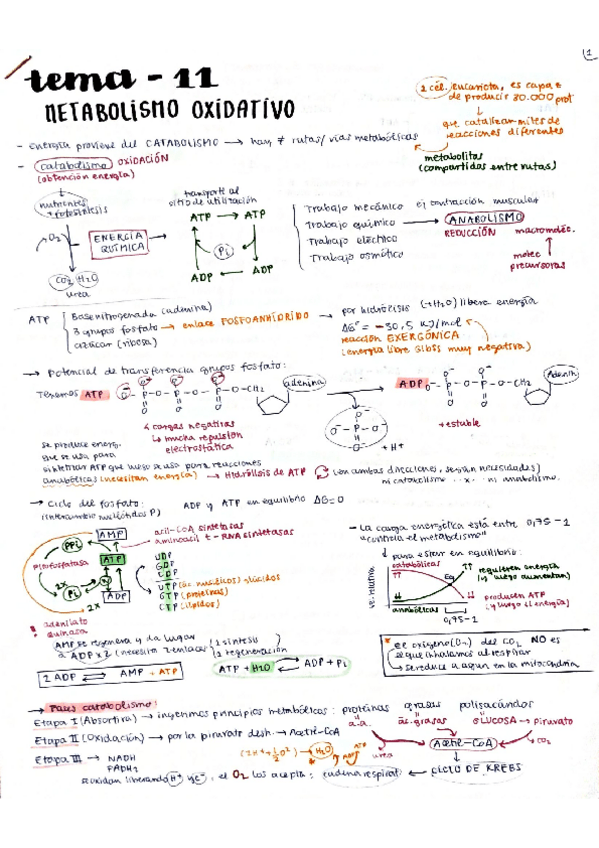 1
tema - 11
METABOLISMO OXIDATIVO
2 cél. eucariota, es capaz
de producir 30.000 prot
que catalizan miles de
reacciones diferentes
- energía proviene del CATABOLISMO → hay ≠ rutas/vías metabólicas
metabolitos
(compartidas entre rutas)
- catabolismo OXIDACIÓN
(obtención energía)
nutrientes
transporte al
sitio de utilización
O2
ENERGÍA
QUÍMICA
CO2 H2O
urea
ATP → ATP
Pi
ADP ← ADP
Trabajo mecánico ej contracción muscular
Trabajo químico → ANABOLISMO
Trabajo eléctrico REDUCCIÓN
Trabajo osmótico
macromoléc.
molec
precursoras
ATP
Base nitrogenada (adenina)
3 grupos fosfato → enlace FOSFOANHÍDRIDO
azúcar (ribosa)
→ por hidrólisis (+H2O) libere energía
ΔG° = -30,5 KJ/mol
reacción EXERGÓNICA
(energía libre Gibbs muy negativa)
→ Potencial de transferencia grupos fosfato:
Tenemos ATP
O- O- O-
O - P - O - P - O - P - O - CH2
O O O
adenina
ADP
O- O-
O - P - O - P - O - CH2
O O
Adenin
O-
O- - P - O-
O
+ H+
+estable
4 cargas negativas
↳ mucha repulsión
electrostática
se produce energ.
que se usa para
sintetizar ATP que luego se usa para reacciones
anabólicas (necesitan energía) → Hidrólisis de ATP
(en ambas direcciones, según necesidades)
ni catabolismo ni anabolismo.
→ Ciclo del fosfato: ADP y ATP en equilibrio ΔG=0
(intercambio nucleótidos P)
PPi
AMP
acil-CoA sintetasas
aminoacil t-RNA sintetasas
Pirofosfatasa
ATP
2x
Pi
ADP
2x
UDP
GDP
CDP
UTP (ác. nucleicos) glúcidos
GTP (proteínas)
CTP (lípidos)
adenilato
quinasa
AMP se regenera y da lugar
a ADP x 2 (necesito 2 enlaces
1 síntesis
1 regeneración
2 ADP ⇄ AMP + ATP
ATP + H2O ⇄ ADP + Pi
- La carga energética está entre 0,75 - 1
"controla el metabolismo"
↓ para estar en equilibrio:
catabólicas
↑↑
Eq
↓↓
anabólicas
0,75-1
vel. relativa
requieren energía
(y luego aumentan)
producen ATP
(y luego ↓ energía)
* el oxígeno (O2) del CO2 NO es
el que inhalamos al respirar
→ se reduce a agua en la mitocondria
→ Fases catabolismo:
Etapa I (Absortiva) → ingerimos principios metabólicos: proteínas grasas polisacáridos
a.a. ác. grasos GLUCOSA → piruvato
Etapa II (Oxidación) → por la piruvato desh. → Acetil-CoA
Acetil-CoA
CO2
urea
Etapa III → NADH
FADH2
(2H+ + ½O2) → H2O
ADP ATP
se oxidan liberando H+ y e-, el O2 los acepta: cadena respirat
CICLO DE KREBS